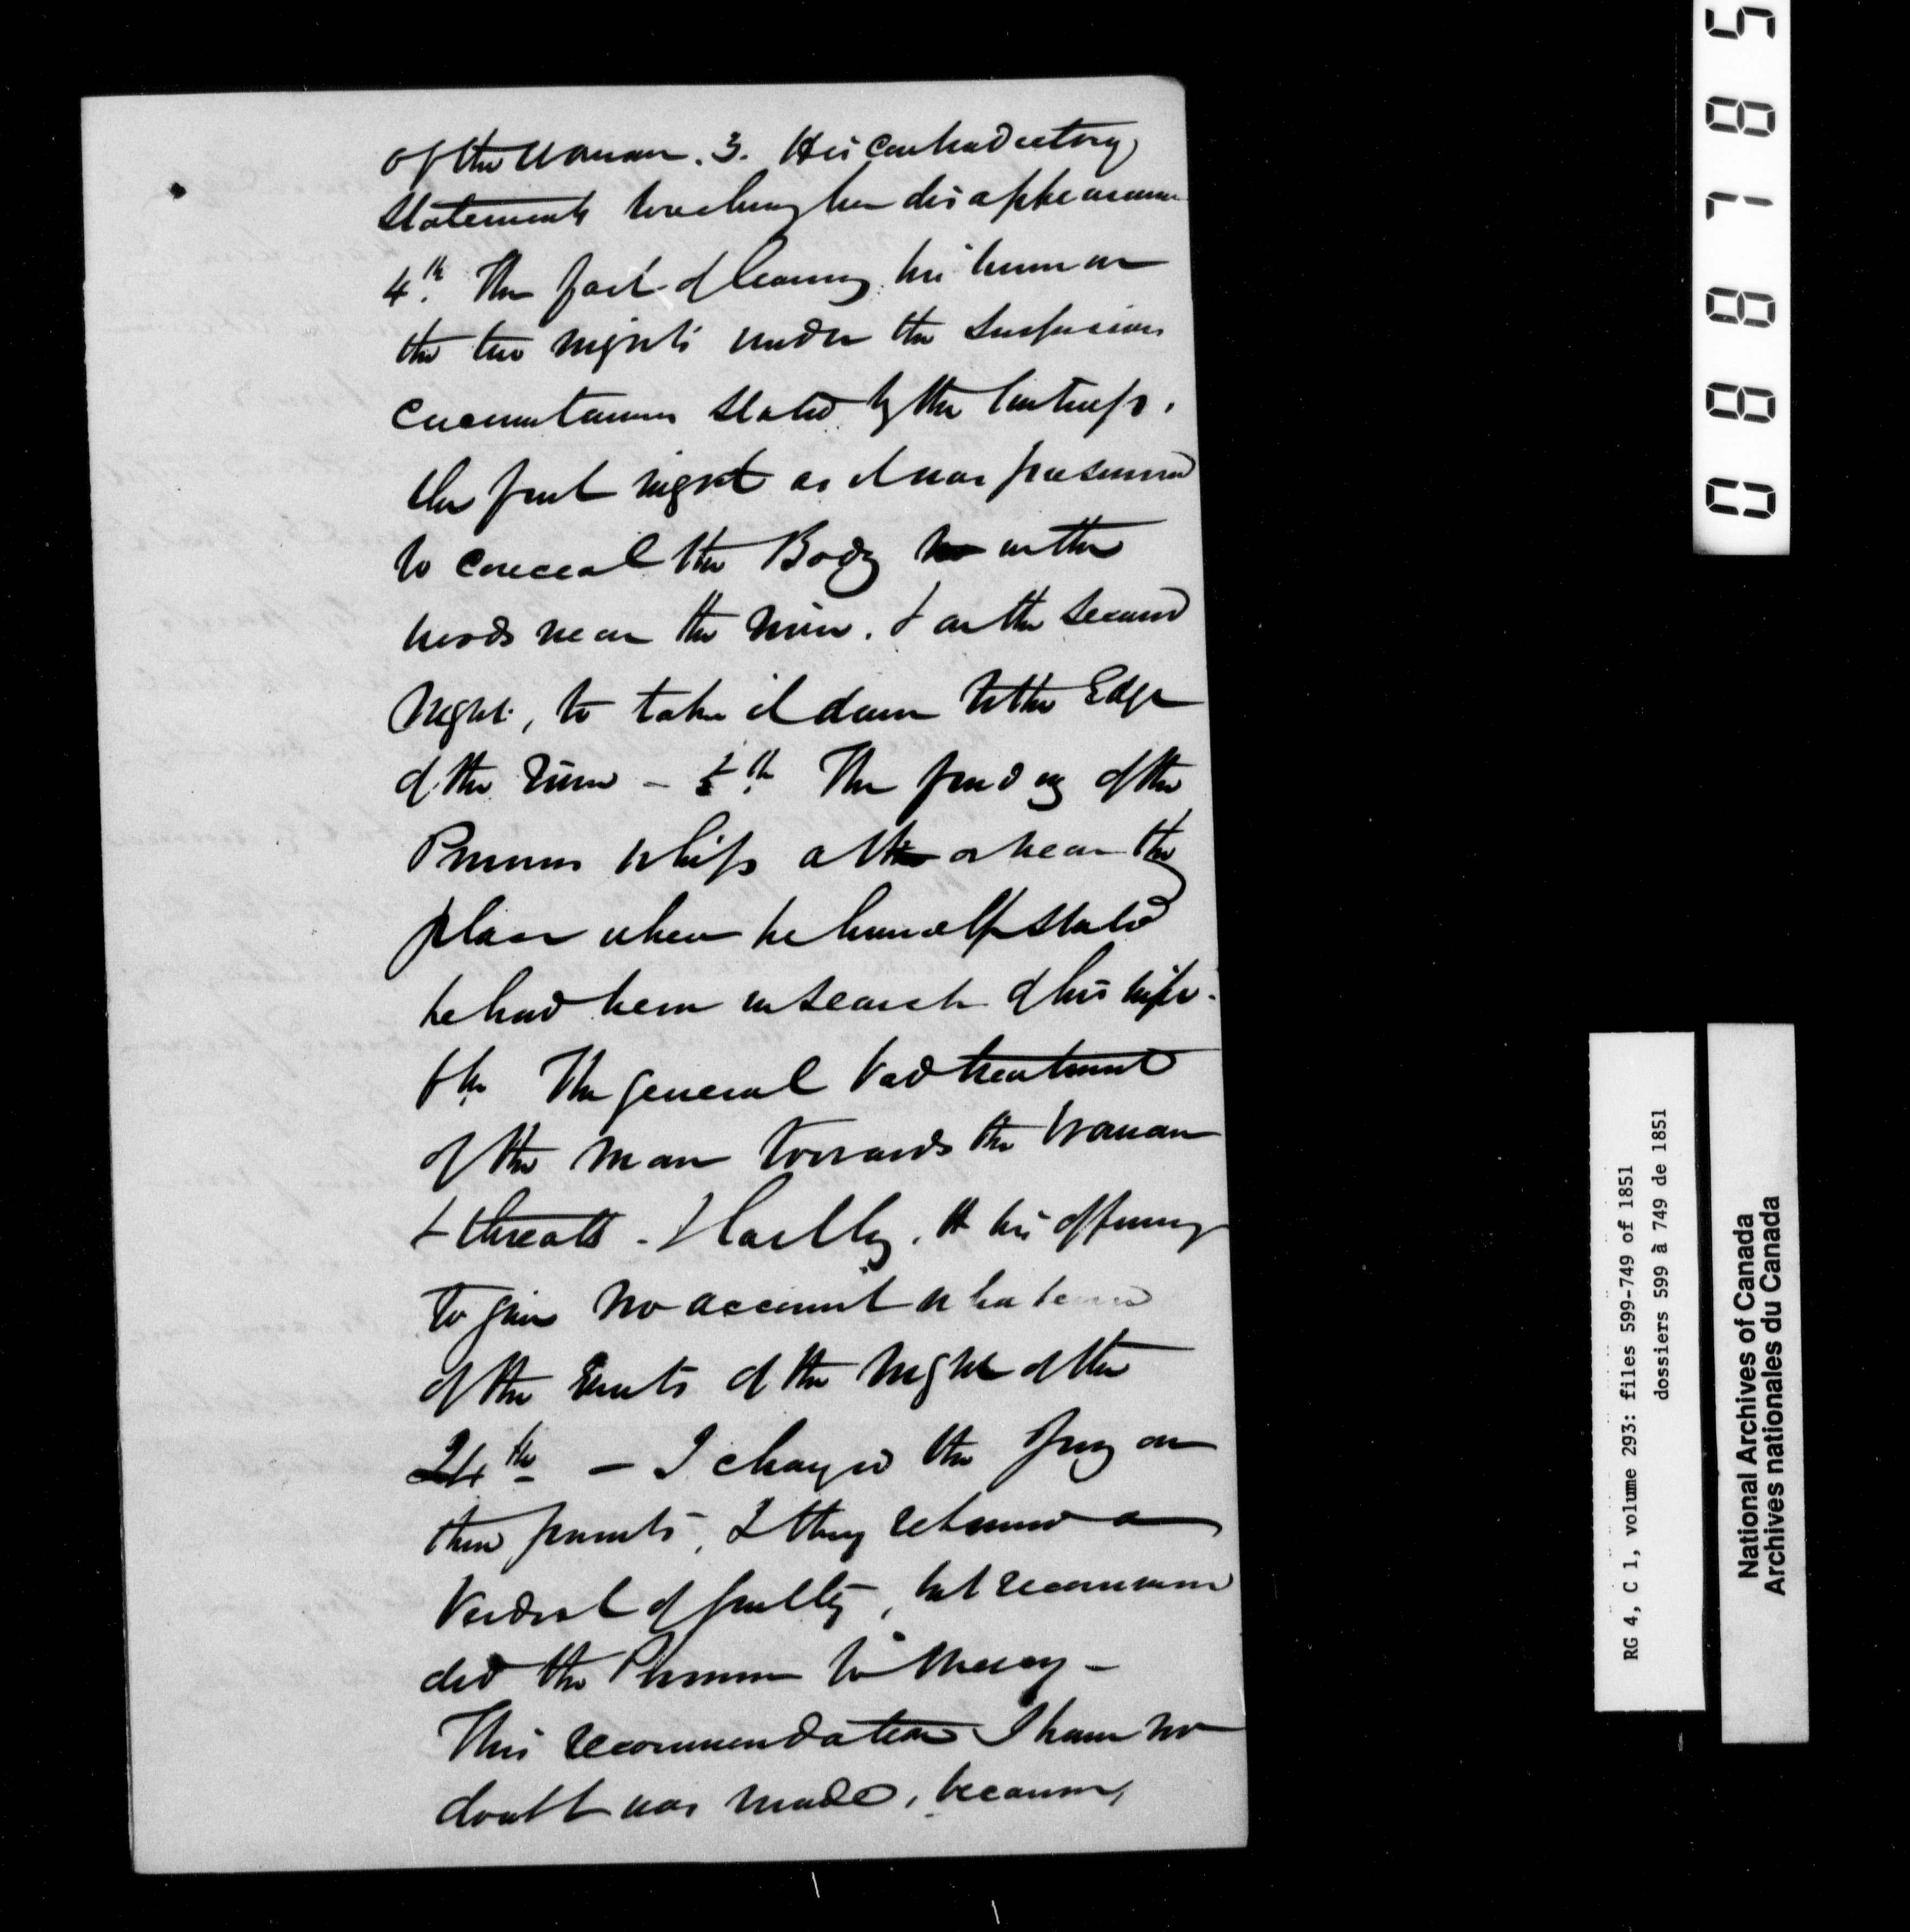 of the woman. 3. His contradictory
statements touching her disappearance
4th. The fact of leaving his house on
the two nights under the suspicious
circumstances stated by the witness.
the first night as it was presumed
to conceal the Body in the
woods near the river. & on the second
night, to take it down to the Edge
of the River - 5th. The finding of the
Prisoners whip at or near the
place where he himself stated
he had been in search of his wife.
6th. The general bad treatment
of the man towards the woman
& threats - & lastly, his offering
to give no account whatever
of the Events of the night of the
24th - I charged the Jury on
these points, & they returned a
Verdict of guilty, but recommen
ded the Prisoner to mercy -
This recommendation I have no
doubt was made, because,
088785
RG 4, C 1, volume 293: files 599-749 of 1851
dossiers 599 à 749 de 1851
National Archives of Canada
Archives nationales du Canada